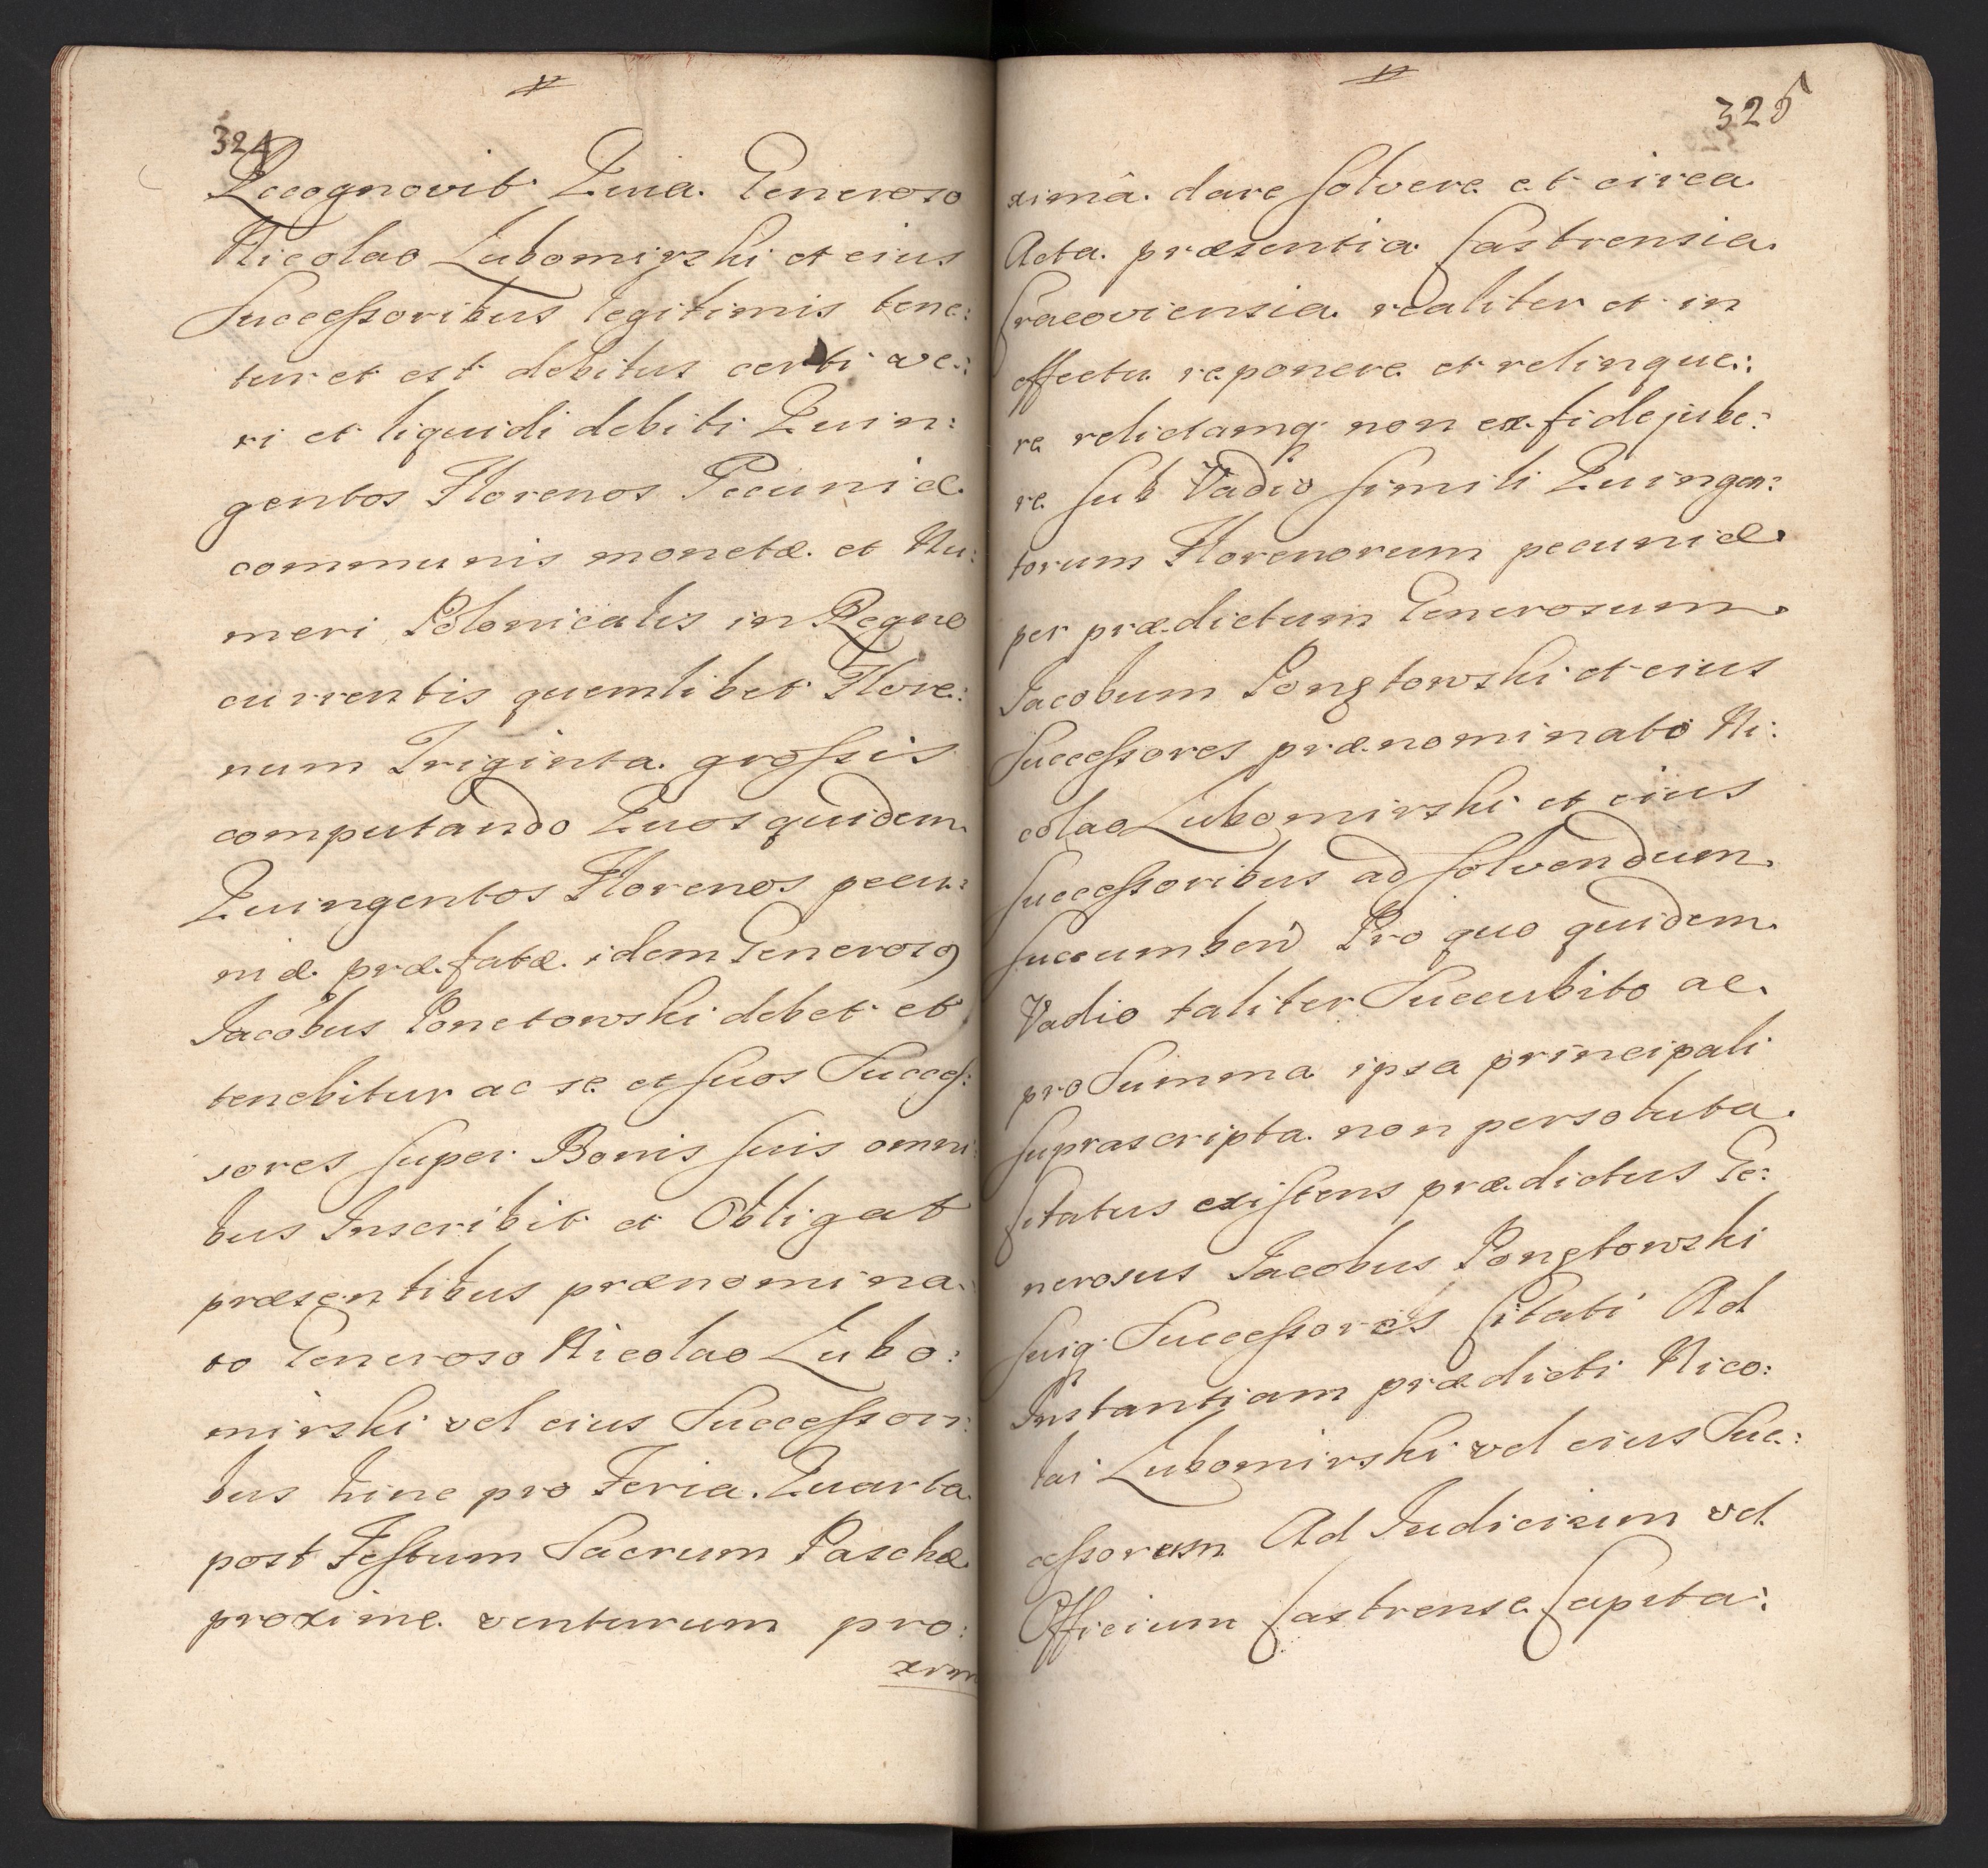 324
Recognovit Quia Generoso
Nicolao Lubomirski et eius
Successoribus legitimis tene:
tur et est debitus certi ve:
ri et liquidi debiti Quin:
gentos Florenos Pecuniæ
communis monetæ et Nu:
meri Polonicalis in Regno
currentis quemlibet Flore:
num Triginta grossis
computando Quos quidem
Quingentos Florenos pecu:
niæ præfatæ idem Generosq
Jacobus Ponetowski debet et
tenebitur ac se et suos Succes:
sores super Bonis suis omni
bus Inscribit et Obligat
præsentibus prænomina
to Generoso Nicolao Lubo:
mirski vel eius Successori:
bus hinc pro Feria Quarta
post Festum Sacrum Paschæ
proxime venturum pro:
xim
325
ximâ dare solvere et circa
Acta præsentia Castrensia
Cracoviensia realiter et in
effectu reponere et relinque:
re relictamq non ex fidejube:
re sub Vadio simili Quingen:
torum Florenorum pecuniæ
per prædictum Generosum
Jacobum Pongtowski et eius
Successores prænominato Ni:
colao Lubomirski et eius
successoribus ad solvendum
succumben Pro quo quidem
Vadio taliter Succubito ac
pro Summa ipsa principali
suprascripta non persoluta
Citatus existens prædictus Ge:
nerosus Jacobus Pongtowski
suiq Successores Citati Ad
Instantiam prædicti Nico:
lai Lubomirski vel eius Suc:
cessorum Ad Judicium vel
Officium Castrense Capita: